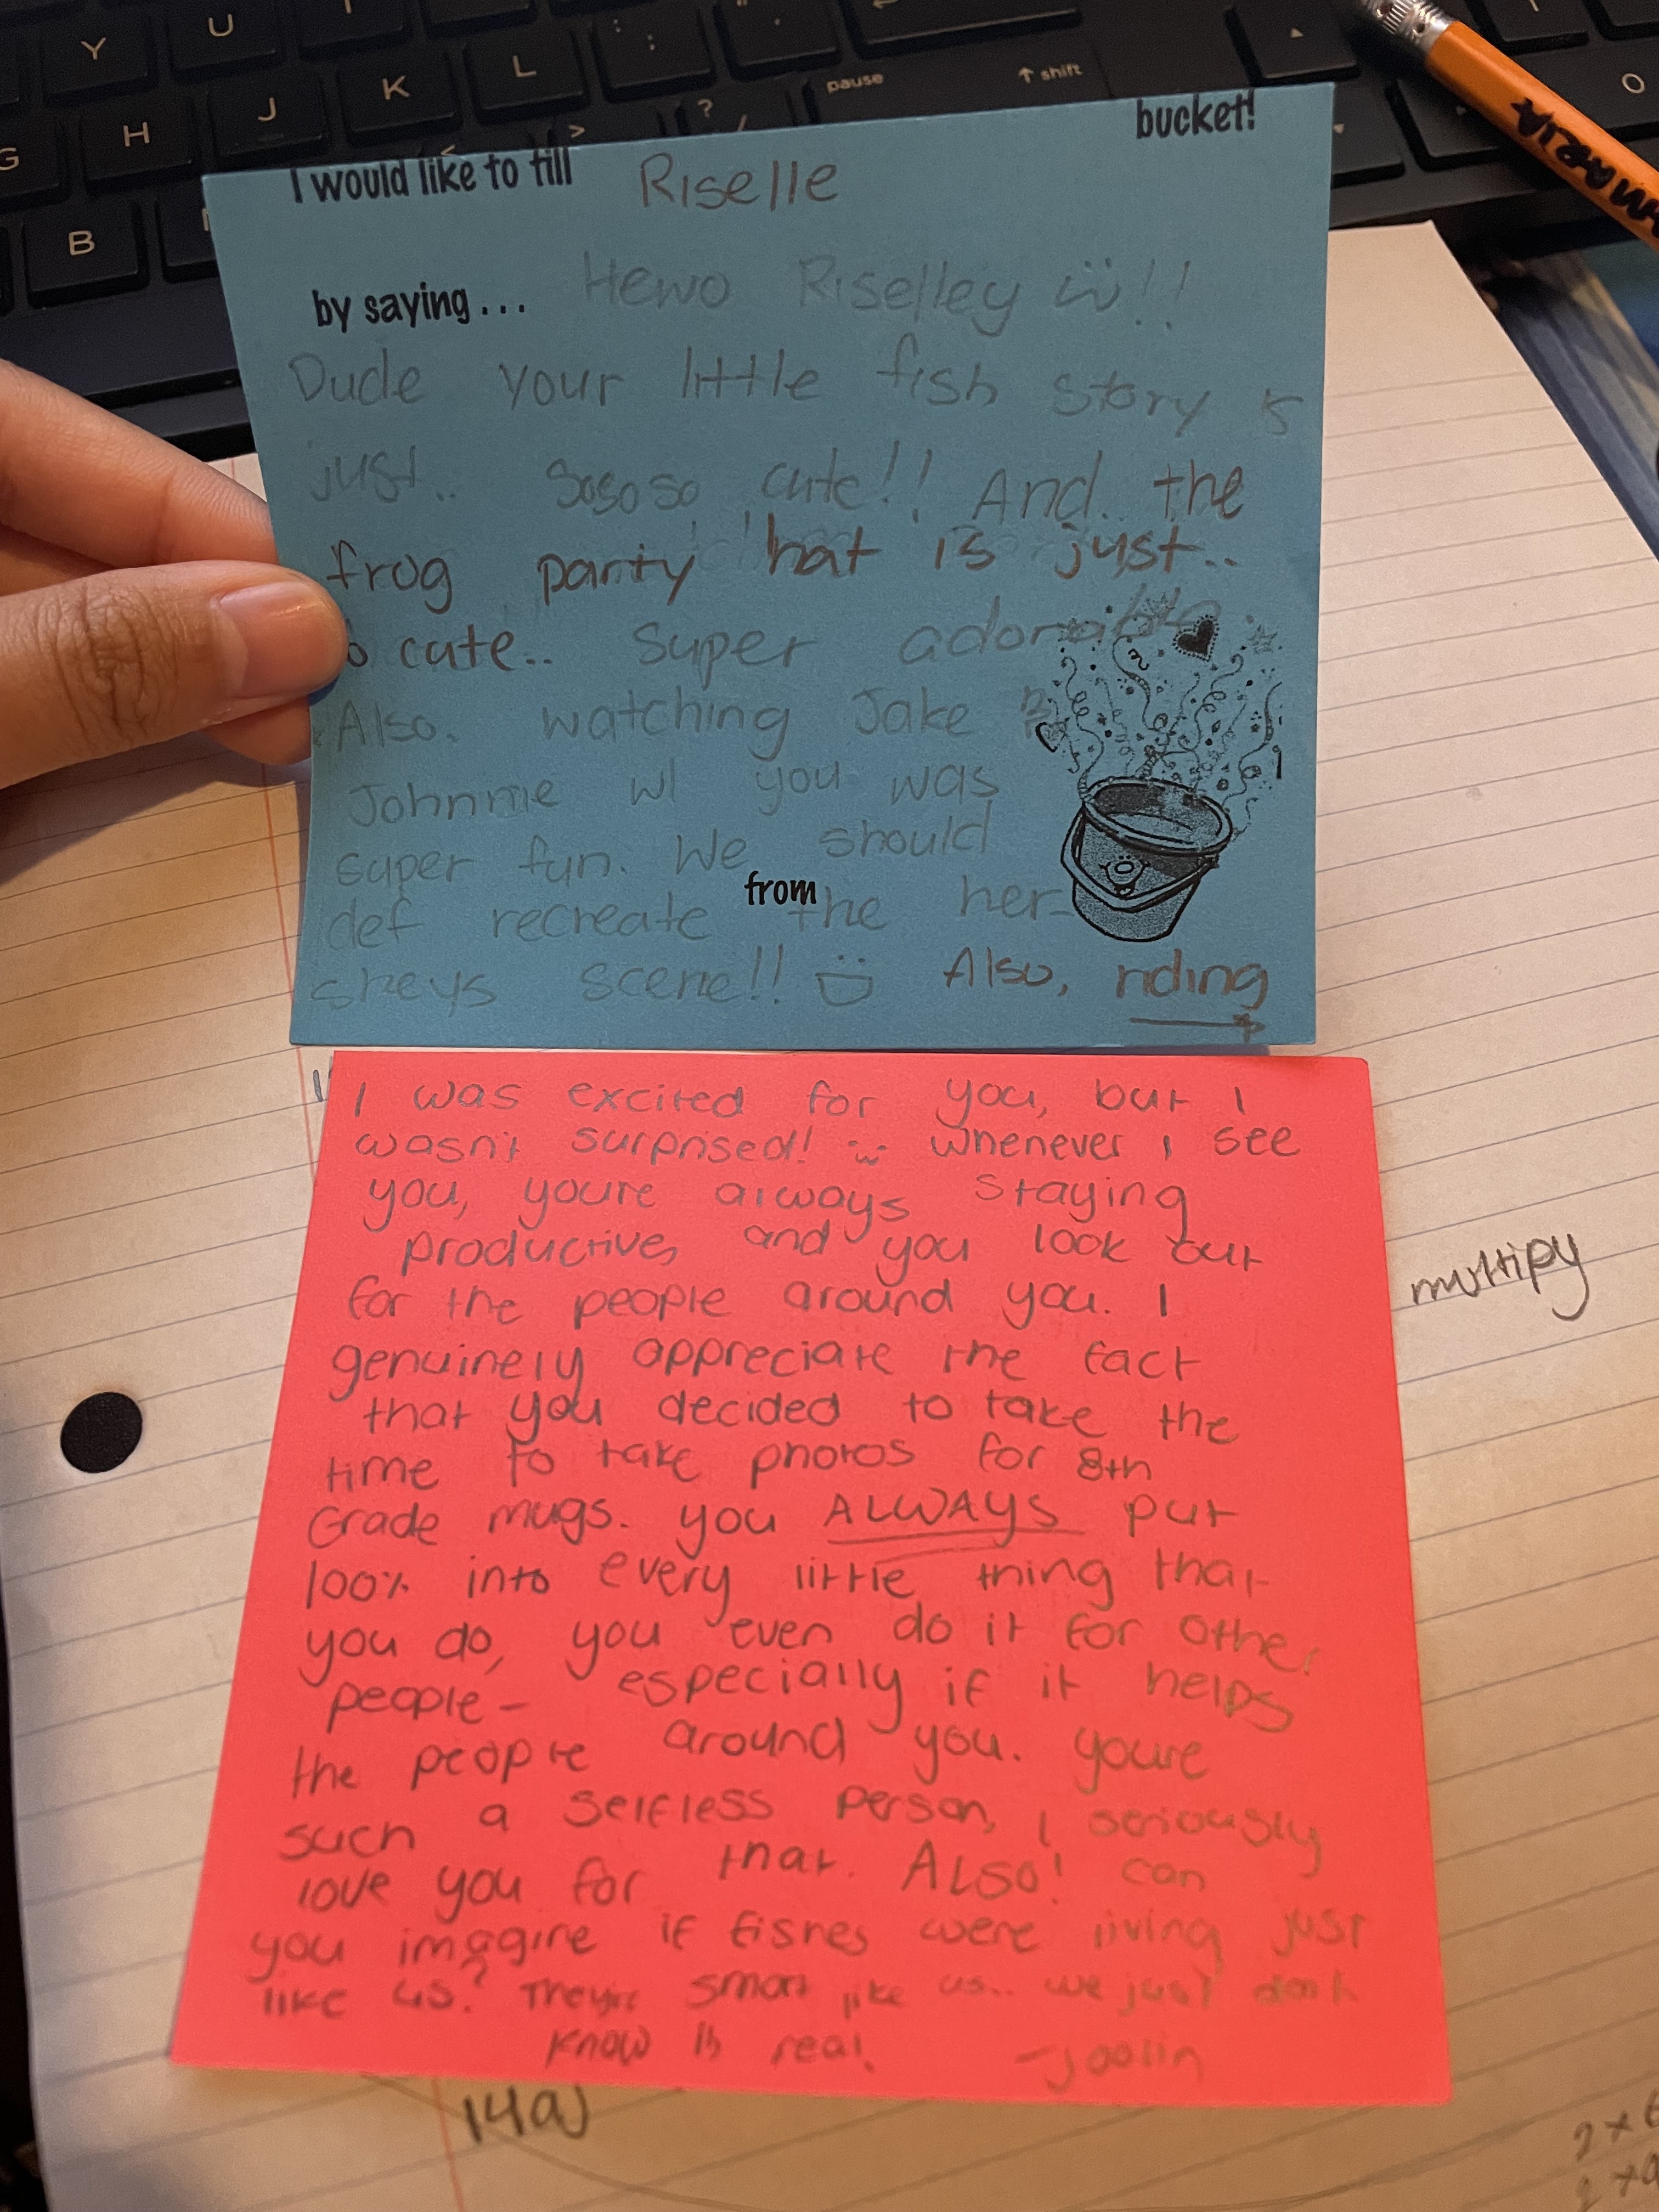 Y U I
H J K L : ; " '
G B > < ? / pause ↑ shift
O
MARIA
bucket!
I would like to fill Riselle
by saying... Hewo Riselley !!
Dude your little fish story is
just.. sososo cute!! And.. the
frog party hat is just..
so cute.. super adorable.
Also. watching Jake &
Johnnie w/ you was
super fun. We should
def recreate the her-
from
sheys scene!! Also, riding
I was excited for you, but I
wasn't surprised! whenever I see
you, youre always staying
productive, and you look out
for the people around you. I
genuinely appreciate the fact
that you decided to take the
time to take photos for 8th
Grade mugs. you ALWAYS put
100% into every little thing that
you do, you even do it for other
people - especially if it helps
the people around you. youre
such a selfless person, I seriously
love you for that. ALSO! can
you imagine if fishes were living just
like us? They're smart like us.. we just don't
know it's real. -Joolin
multipy
14a)
2 x